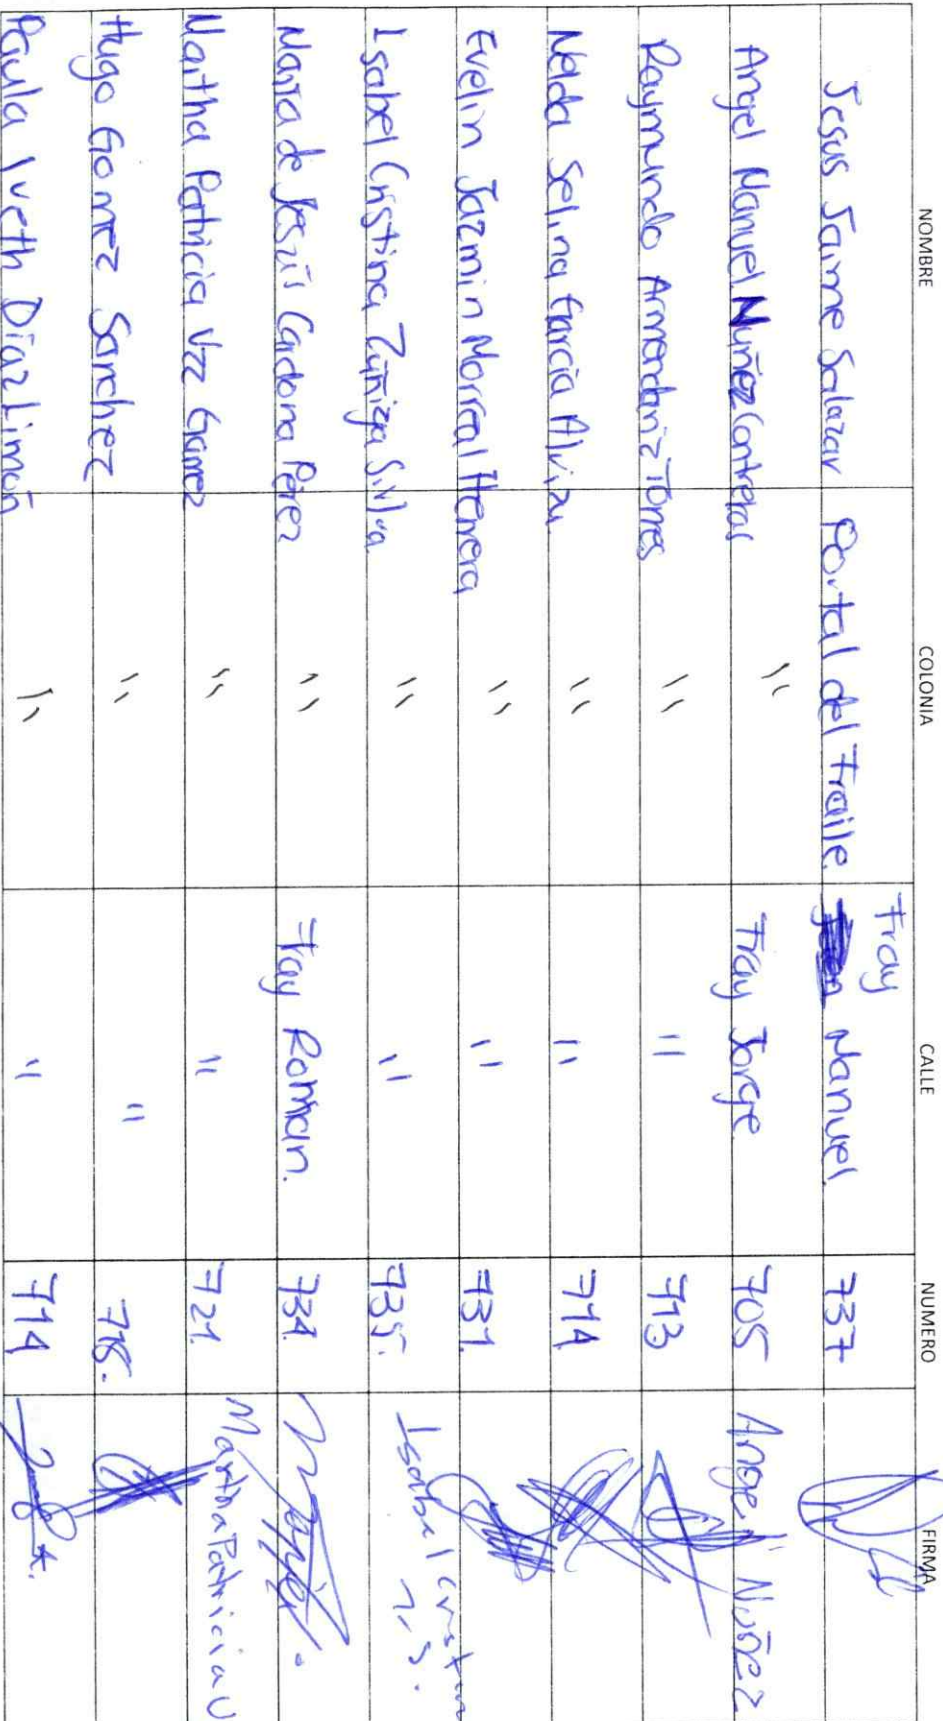 NOMBRE COLONIA CALLE NUMERO FIRMA
Jesus Jaime Salazar Portal del Fraile. Fray Manuel. 737
Angel Manuel Nuñez Contreras " Fray Jorge 705 Angel Nuñez
Raymundo Armendariz Torres " " 713
Nelda Selina Garcia Alvizu " " 714
Evelin Jazmin Morreal Herrera " " 731.
Isabel Cristina Zuñiga Silva " " 735. Isabel Cristin Z.S.
Maria de Jesús Cardona Pérez " Fray Roman. 734.
Martha Patricia Vzz Gamez " " 721. Martha Patricia V
Hugo Gomez Sanchez " " 718.
Paula Iveth Díaz Limón " " 714